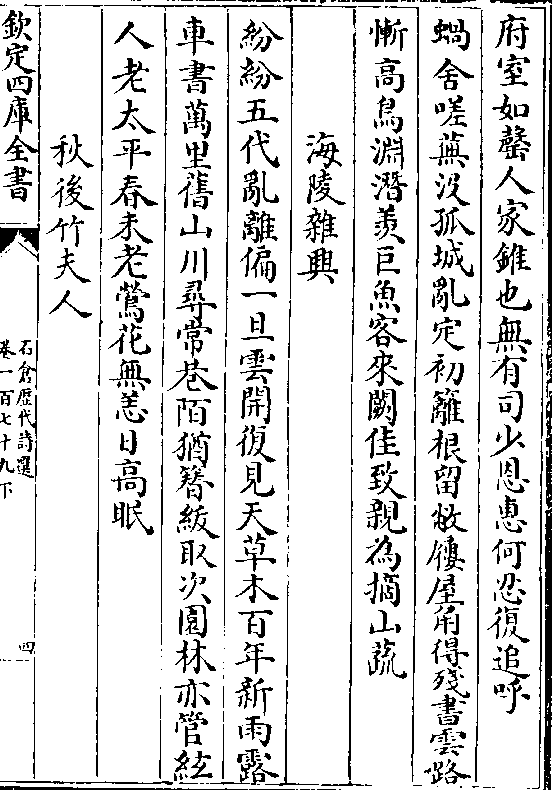 府室如罄人家錐也無有司少恩惠何忍復追呼
蝸舍嗟蕪没孤城亂定初籬根留敝屨屋角得殘書雲路
慚高鳥淵潛羨巨魚客來闕佳致親為摘山蔬
海陵雜興
紛紛五代亂離偏一旦雲開復見天草木百年新雨露
車書萬里舊山川尋常巷陌猶簪紱取次園林亦管絃
人老太平春未老鶯花無恙日高眠
秋後竹夫人
欽定四庫全書
石倉歷代詩選
卷一百七十九下
四